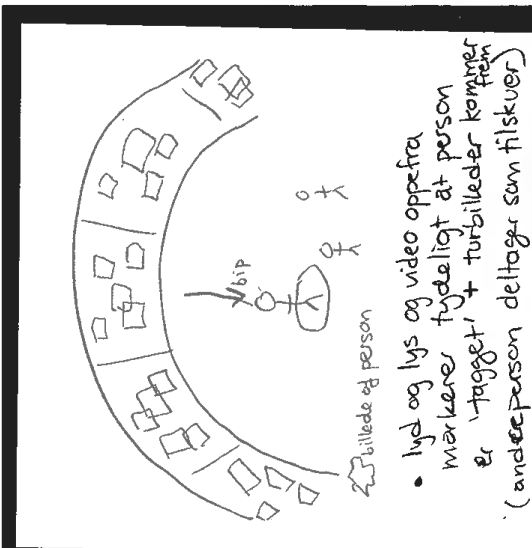 bip
billede af person
• lyd og lys og video oppefra
markerer tydeligt at person
er 'tagget' + turbilleder kommer
frem
(andre person deltager som tilskuer)